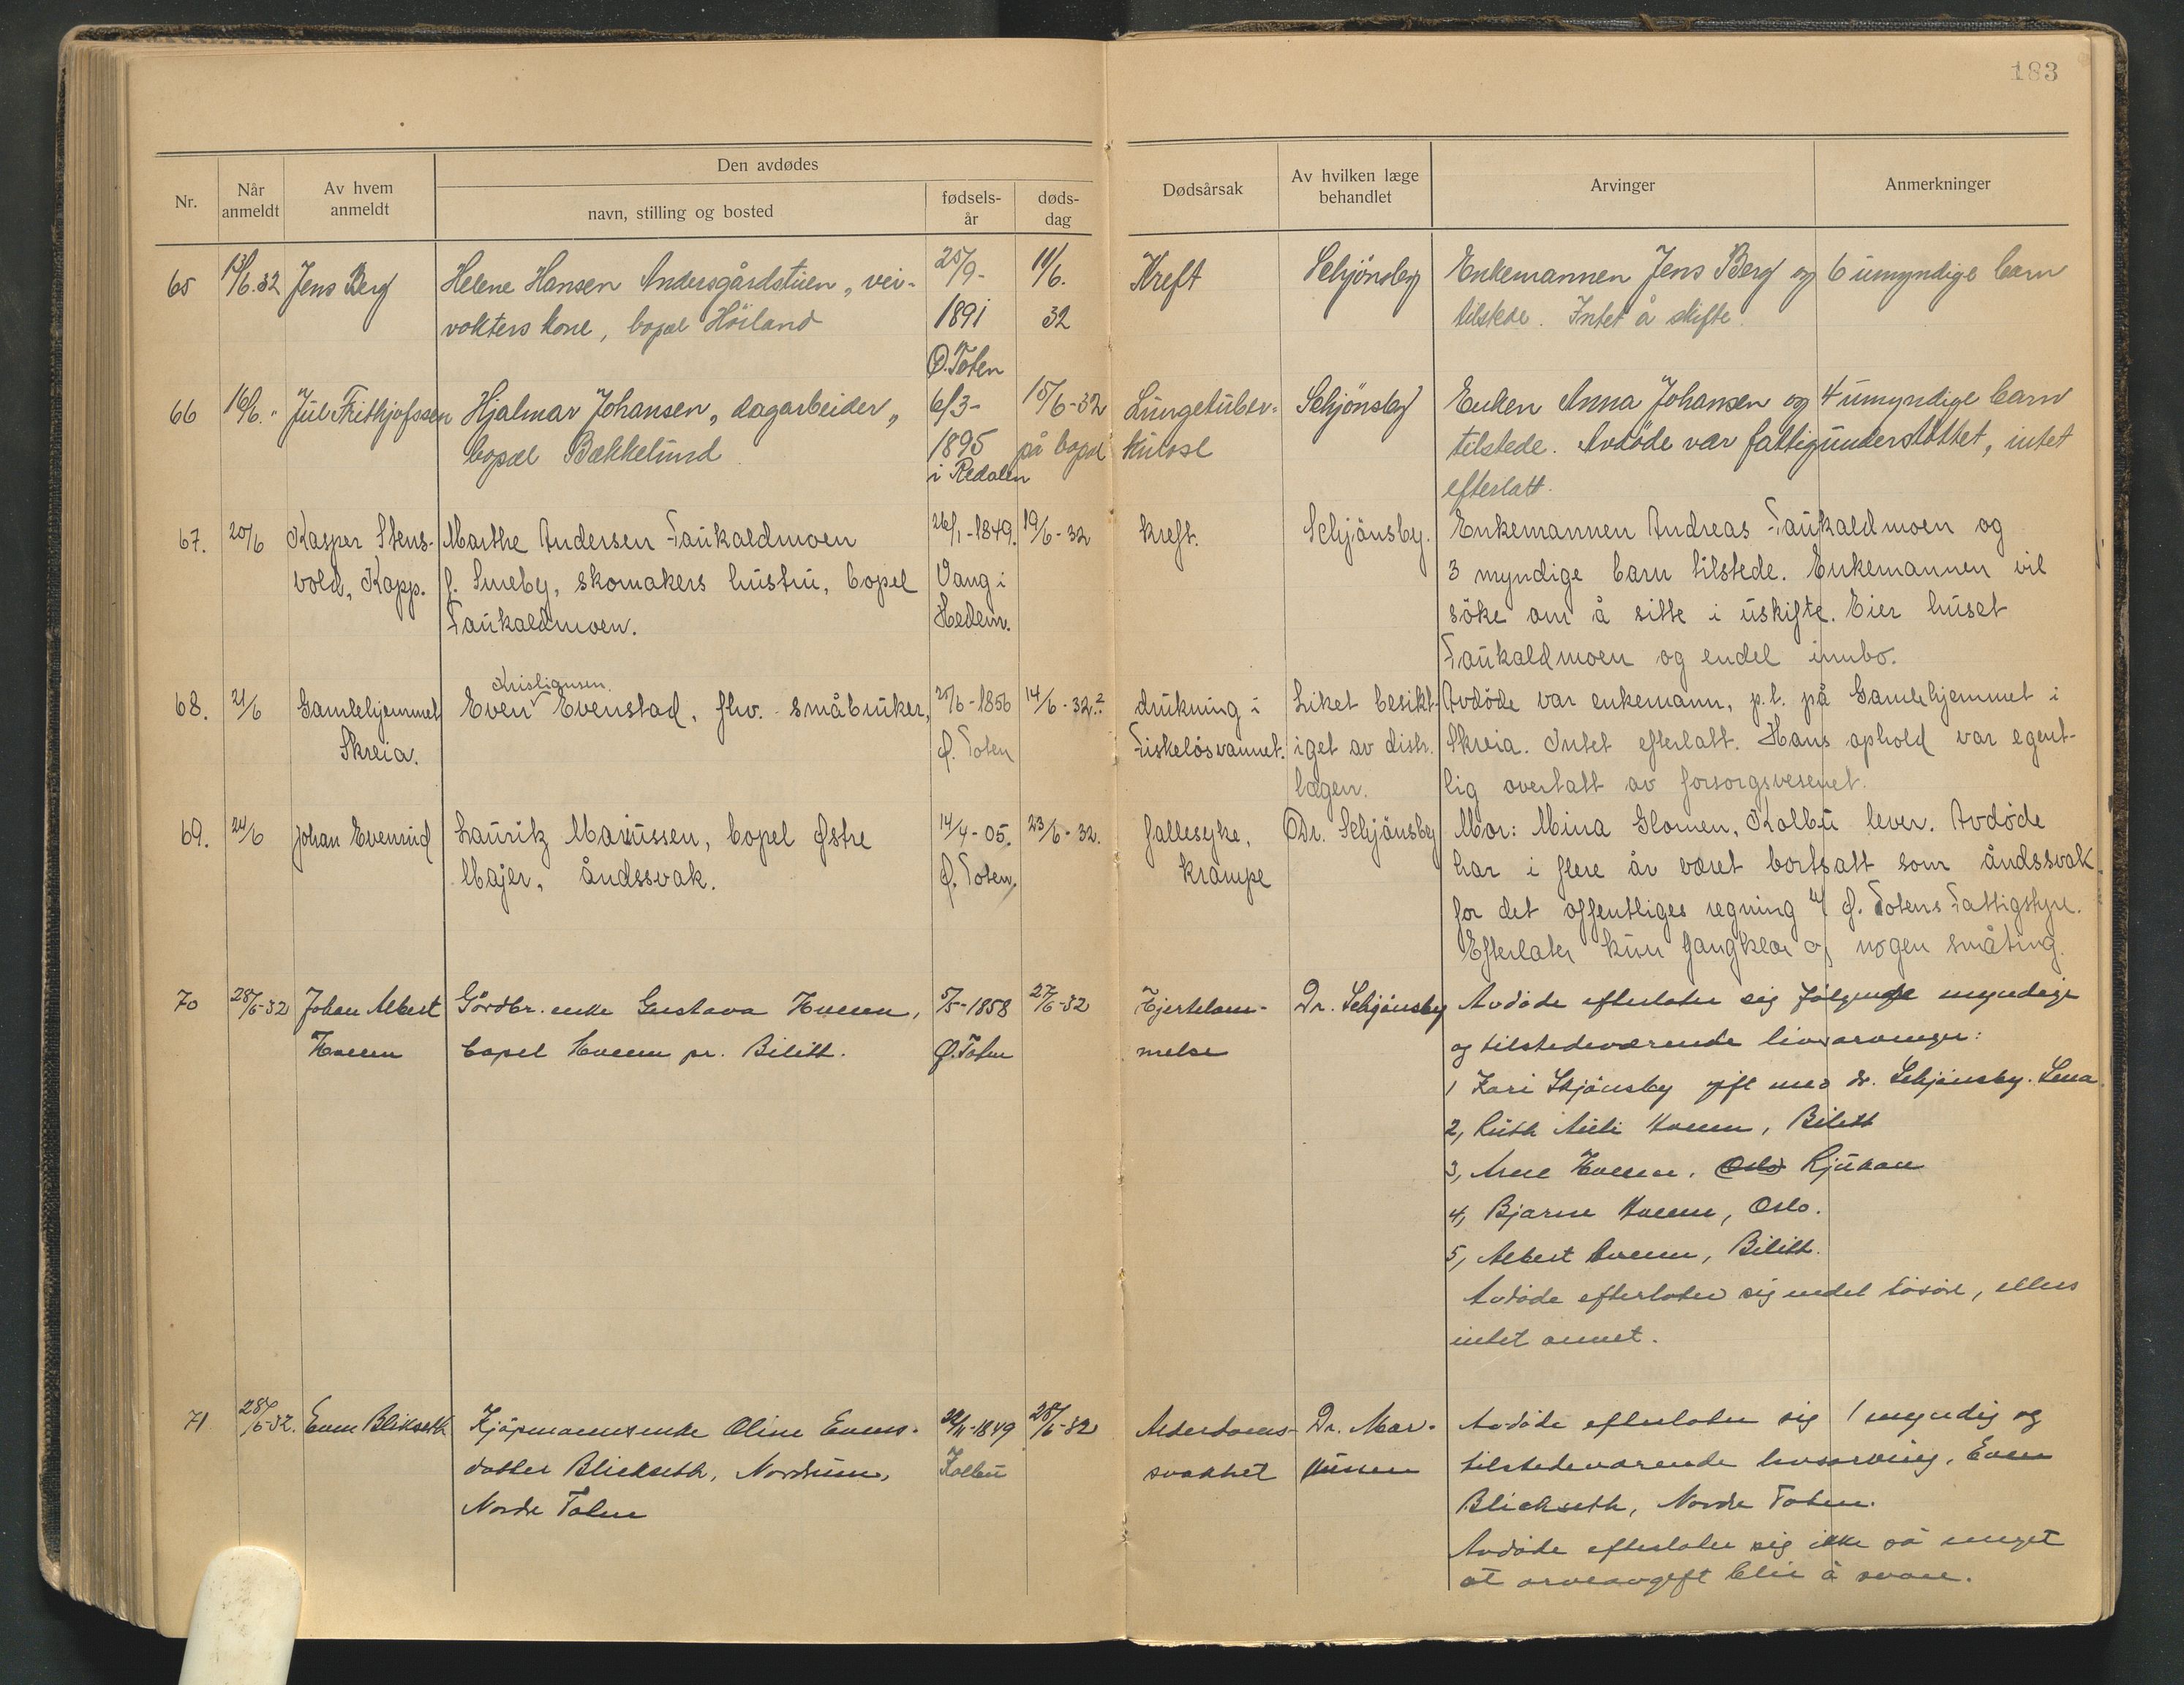 183
Nr.
Når anmeldt
Av hvem anmeldt
Den avdødes
navn, stilling og bosted
fødsels-år
døds-dag
Dødsårsak
Av hvilken læge behandlet
Arvinger
Anmerkninger
65 13/6.32 Jens Berg Helene Hansen Andersgårdstuen, vei- 25/9- 11/6. Kreft Schjönsby Enkemannen Jens Berg og 6 umyndige barn
vokters kone, bopæl Höiland 1891 32 tilstede. Intet å skifte.
Ø.Toten
66 16/6." Jul Frithjofssen Hjalmar Johansen, dagarbeider, 6/3- 15/6-32 Lungetuber- Schjönsby Enken Anna Johansen og 4 umyndige barn
bopæl Bækkelund 1895 på bopæl kulose tilstede. Avdöde var fattigunderstöttet, intet
i Redalen efterlatt.
67. 20/6 Kasper Stens- Marthe Andersen Faukaldmoen 26/1-1849. 19/6-32 kreft. Schjönsby. Enkemannen Andreas Faukaldmoen og
vold, Kapp. f. Smeby, skomakers hustru, bopel Vang i 3 myndige barn tilstede. Enkemannen vil
Faukaldmoen. Hedem. söke om å sitte i uskifte. Eier huset
Faukaldmoen og endel innbo.
Kristiansen
68. 21/6 Gamlehjemmet Even Evenstad, fhv. småbruker, 25/6-1856 14/6-32.? drukning i Liket besikt- Avdöde var enkemann, p.t. på Gamlehjemmet i
Skreia. Ø. Toten Fiskelösvannet. iget av distr. Skreia. Intet efterlatt. Hans ophold var egent-
lægen. lig overtatt av forsorgsvesenet.
69. 24/6 Johan Evenrud Lauritz Mariussen, bopel Østre 14/4-05. 23/6-32. fallesyke, Dr. Schjönsby Mor: Mina Glomen, Kolbu lever. Avdöde
Majer, åndssvak. Ø. Toten. krampe har i flere år været bortsatt som åndssvak
for det offentliges regning v/ Ø. Totens Fattigstyre.
Efterlater kun gangklær og nogen småting.
70 28/6-32 Johan Albert Gårdbr. enke Gustava Hveem, 5/5-1858 27/6-32 Hjertelam- Dr. Schjönsby Avdöde efterlater sig fölgende myndige
Hveem bopel Hveem pr. Bilitt. Ø.Toten melse og tilstedeværende livsarvinger:
1 Kari Skjönsby gift med dr. Schjönsby. Lena.
2, Ruth Hveem, Bilitt
3, Arne Hveem, Oslo Rjukan
4, Bjarne Hveem, Oslo.
5, Albert Hveem, Bilitt.
Avdöde efterlater sig endel lösöre, ellers
intet annet.
71 28/6-32. Even Blikseth Kjöpmannsenke Oline Evens- 22/11-1849 28/6-32 Alderdoms- Dr. Mar- Avdöde efterlater sig 1 myndig og
datter Blickseth, Nordrum, Kolbu svakhet kussen tilstedeværende livsarving, Even
Nordre Toten Blickseth, Nordre Toten.
Avdöde efterlater sig ikke så meget
at arveavgift blir å svare.